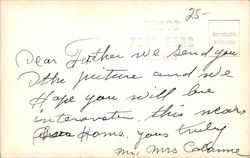 25-
PHOTO
POST CARD
Dear Father we send you
the picture and we
Hope you will be
interest this near
Home, yous truly
Mr, Mrs